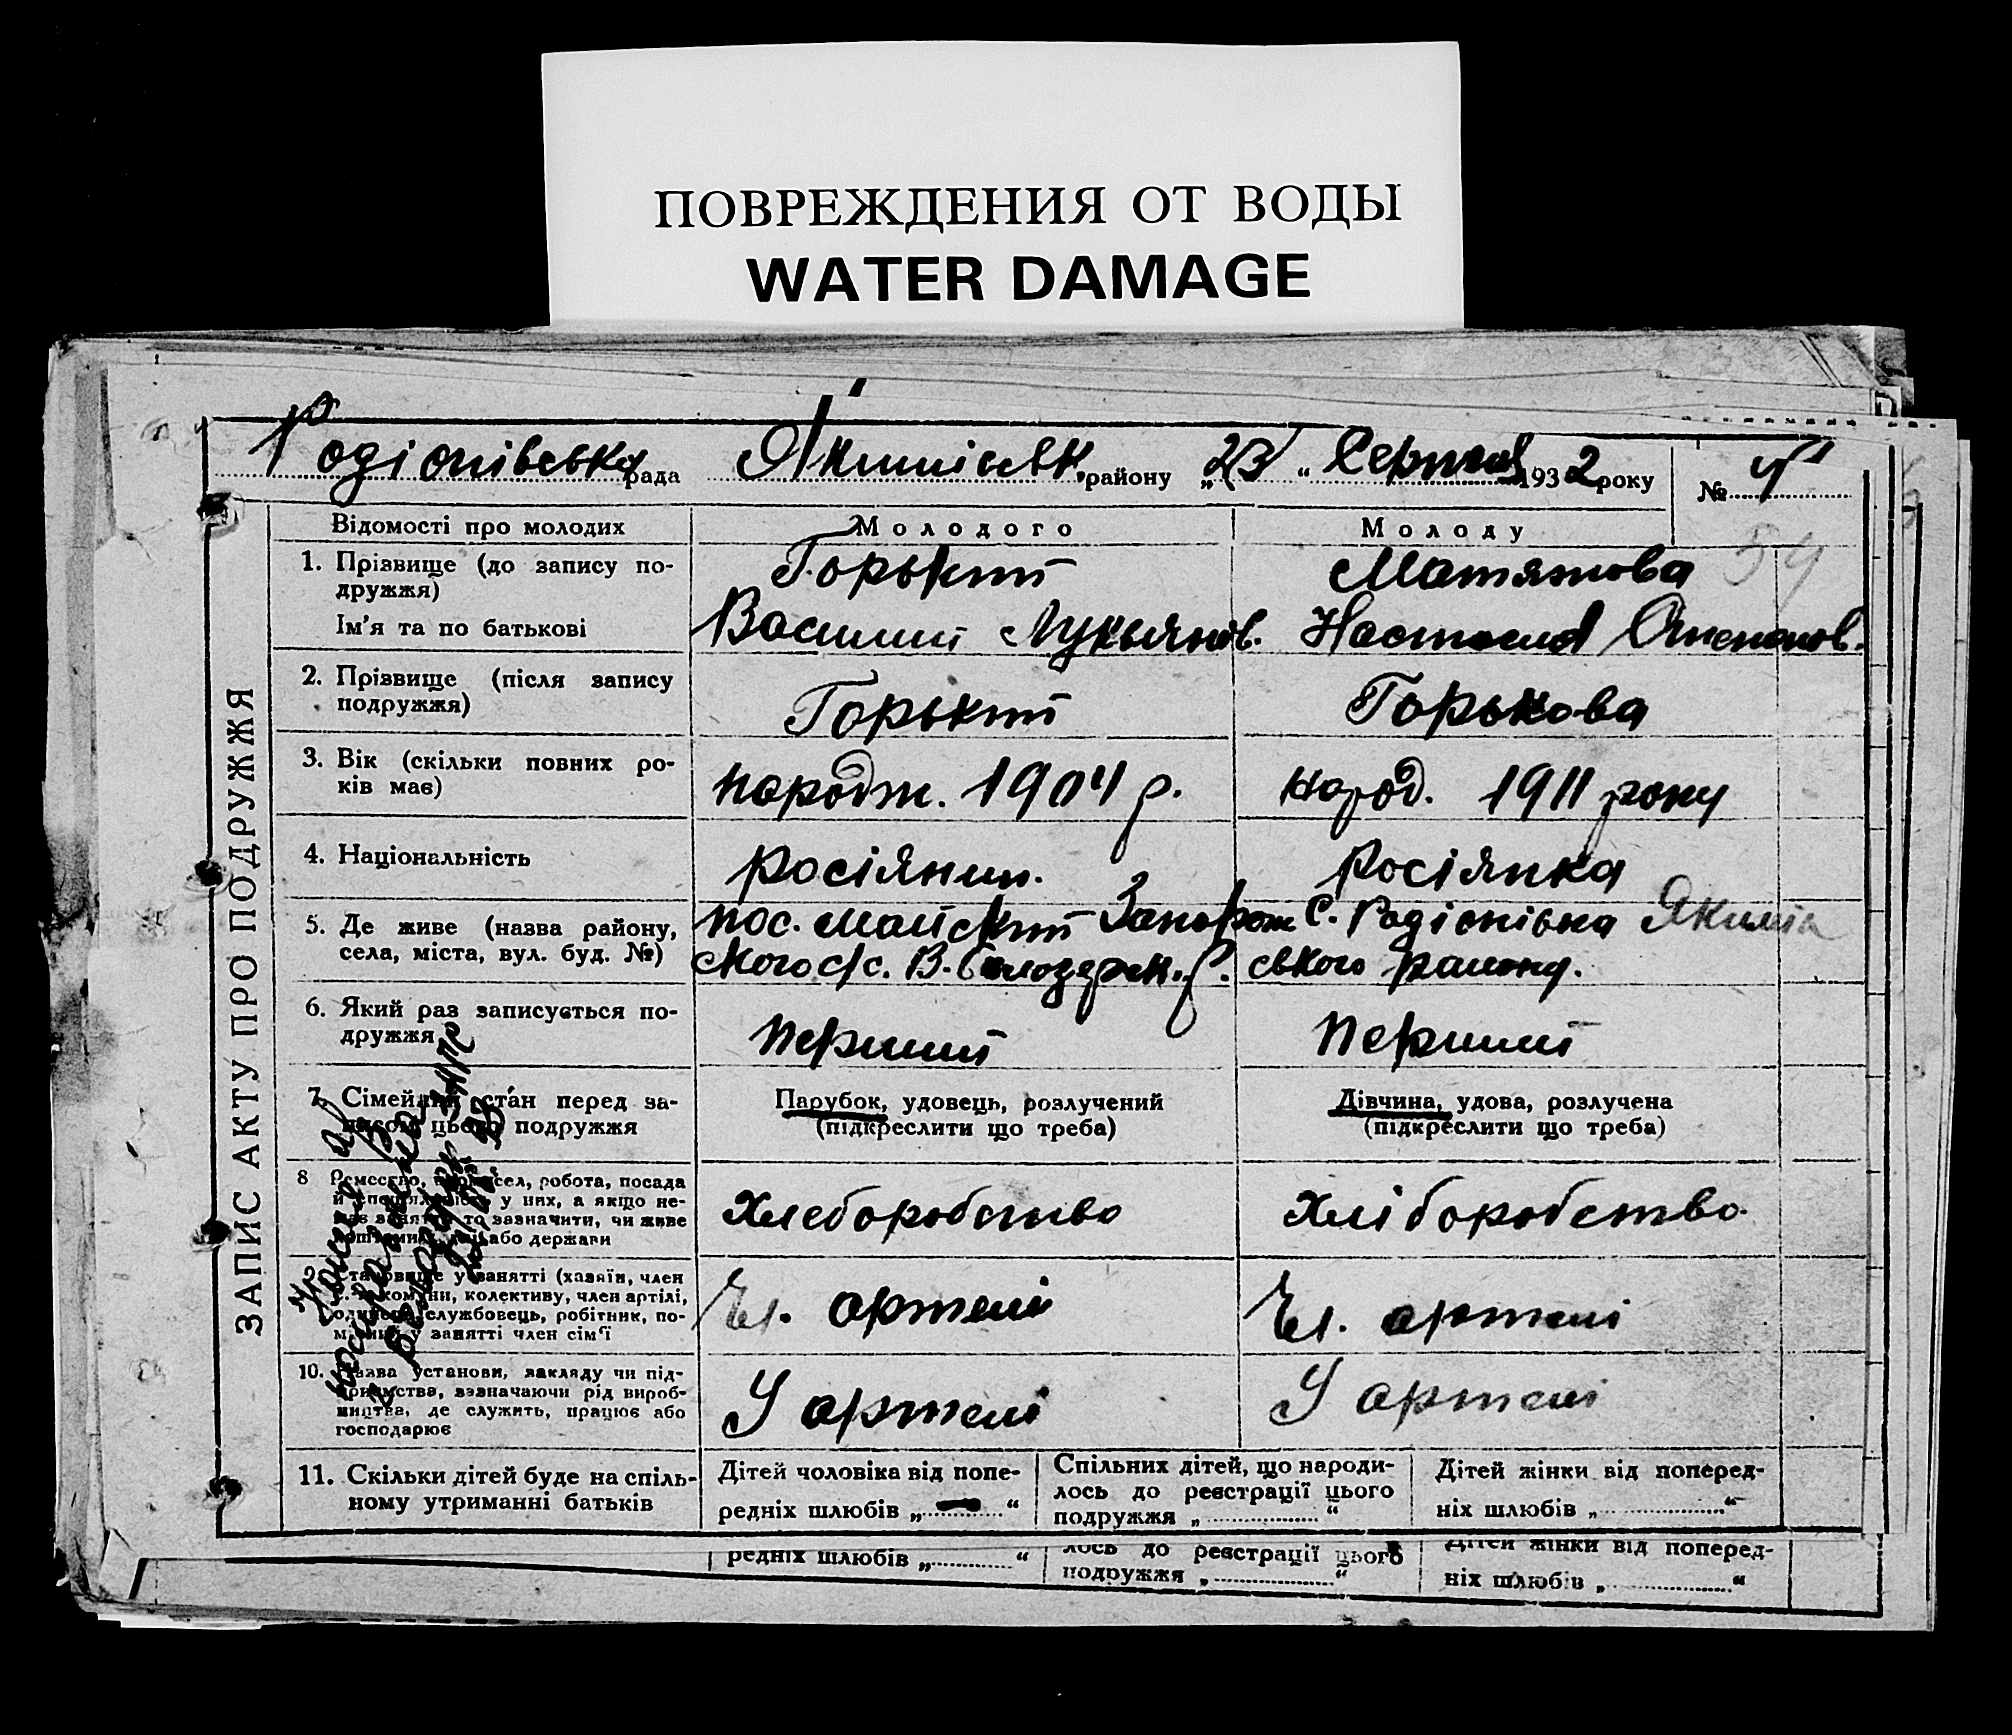 ПОВРЕЖДЕНИЯ ОТ ВОДЫ
WATER DAMAGE
Родіонівська рада Якимівськ. району „23“ Серпня 1932 року № 4
ЗАПИС АКТУ ПРО ПОДРУЖЖЯ
Відомості про молодих Молодого Молоду
1. Прізвище (до запису по-
дружжя) Горький Матякова 54
Ім'я та по батькові Василий Лукьянов. Настасия
2. Прізвище (після запису
подружжя) Горький Горькова
3. Вік (скільки повних ро-
ків має) народж. 1904 р. народ. 1911 року
4. Національність росіянин. росіянка
5. Де живе (назва району,
села, міста, вул. буд. №)
пос. Майский Запорож
ского с/с. В.-Білозерск. р.
с. Радіонівка Якимів
ського району.
6. Який раз записується по-
дружжя перший перший
7. Сімейний стан перед за-
писом цього подружжя
Парубок, удовець, розлучений
(підкреслити що треба)
Дівчина, удова, розлучена
(підкреслити що треба)
8 Ремесство, промисел, робота, посада
й спеціяльність у них, а якщо не-
має заняття, то зазначити, чи живе
або держави
Хлеборобство Хліборобство
9. Становище у занятті (хазяїн, член
комуни, колективу, член артілі,
службовець, робітник, по-
у занятті член сім'ї
Чл. артелі Чл. артелі
10. Назва установи, закладу чи під-
приємства, зазначаючи рід вироб-
ництва, де служить, працює або
господарює
У артелі У артелі
11. Скільки дітей буде на спіль-
ному утриманні батьків
Дітей чоловіка від попе-
редніх шлюбів „ — “
Спільних дітей, що народи-
лось до реєстрації цього
подружжя „ “
Дітей жінки від поперед-
ніх шлюбів „ “
редніх шлюбів „ “
лось до реєстрації цього
подружжя „ “
Дітей жінки від поперед-
ніх шлюбів „ “